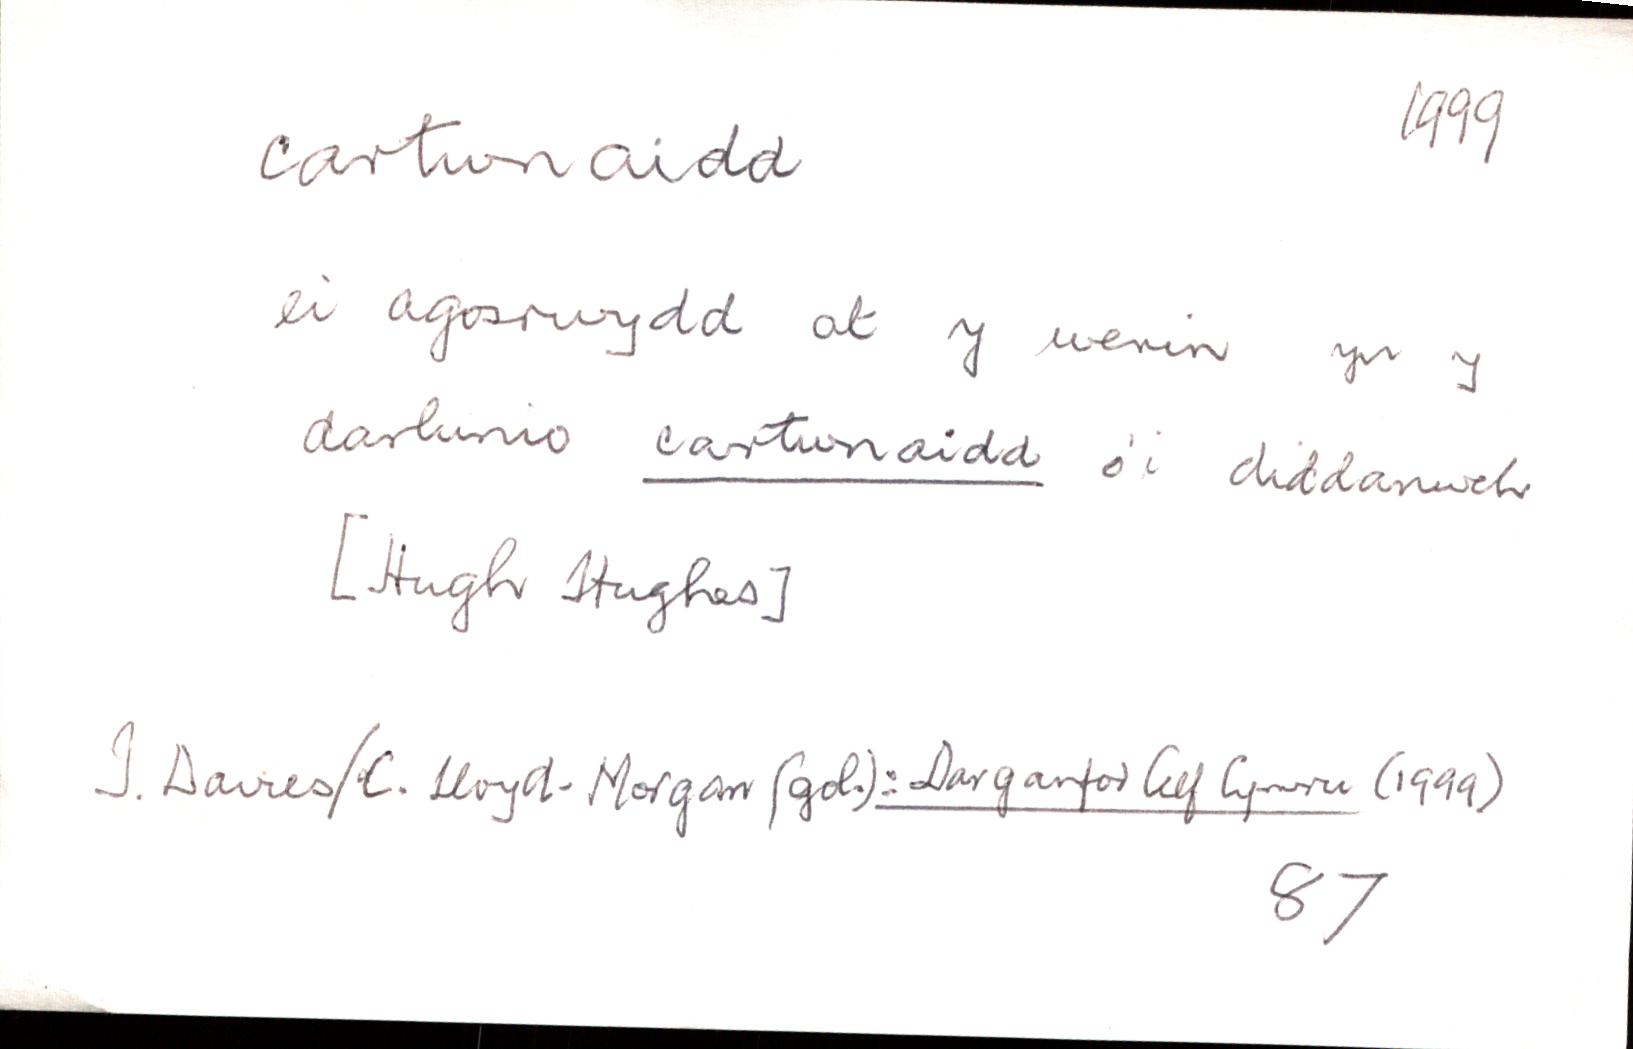 1999
cartwnaidd
ei agosrwydd at y werin yn y
darlunio cartwnaidd o'i diddanwch
[Hugh Hughes]
I. Davies/C. Lloyd-Morgan (gol.): Darganfod Celf Cymru (1999)
87